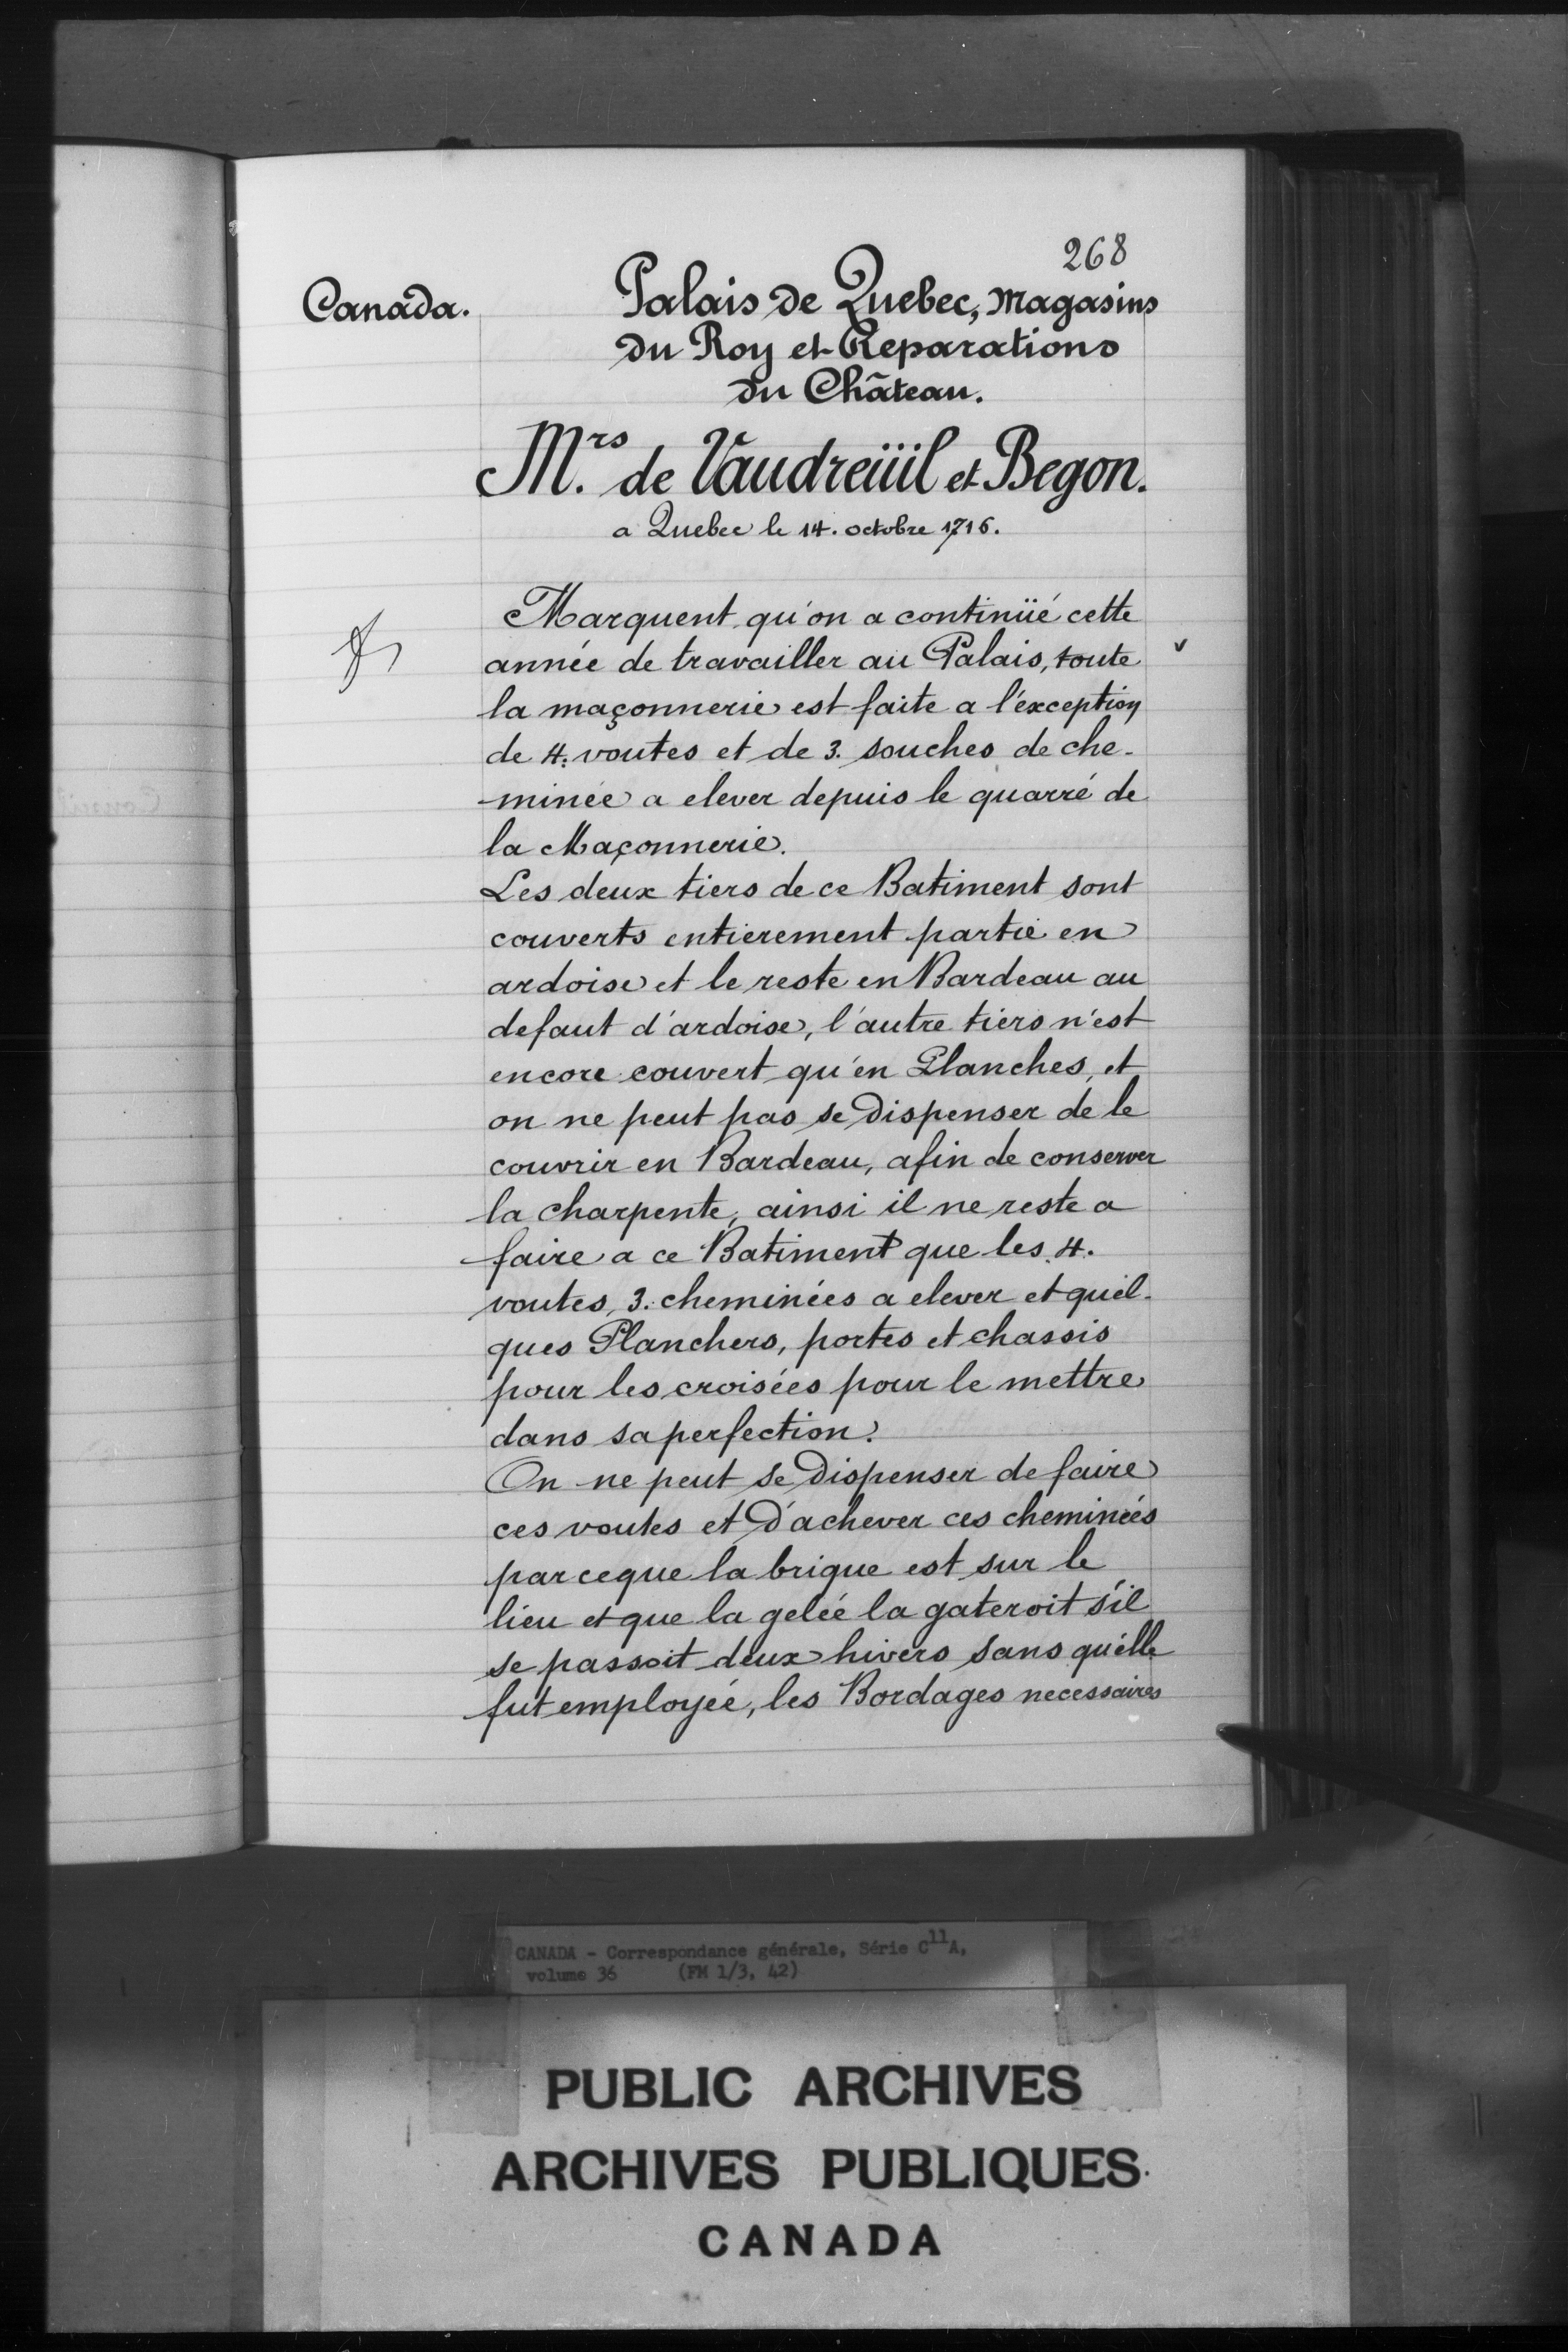 268
Canada.
Palais de Quebec, Magasins
du Roy et Reparations
du Château.
Mrs. de Vaudreüil et Begon.
a Quebec le 14. octobre 1716.
Marquent qu'on a continüé cette
année de travailler au Palais, toute
la maçonnerie est faite a l'éxception
de 4. voutes et de 3. souches de che-
minée a elever depuis le quarré de
la Maçonnerie.
Les deux tiers de ce Batiment sont
couverts entierement partie en
ardoise et le reste en Bardeau au
defaut d'ardoise, l'autre tiers n'est
encore couvert qu'en Planches, et
on ne peut pas se Dispenser de le
couvrir en Bardeau, afin de conserver
la charpente, ainsi il ne reste a
faire a ce Batiment que les 4.
voutes, 3. cheminées a elever et quel-
ques Planchers, portes et chassis
pour les croisées pour le mettre
dans sa perfection.
On ne peut se Dispenser de faire
ces voutes et D'achever ces cheminées
parceque la brique est sur le
lieu et que la gelée la gateroit s'il
se passoit deux hivers sans qu'elle
fut employée, les Bordages necessaires
CANADA - Correspondance générale, Série C11A,
volume 36 (FM 1/3, 42)
PUBLIC ARCHIVES
ARCHIVES PUBLIQUES
CANADA